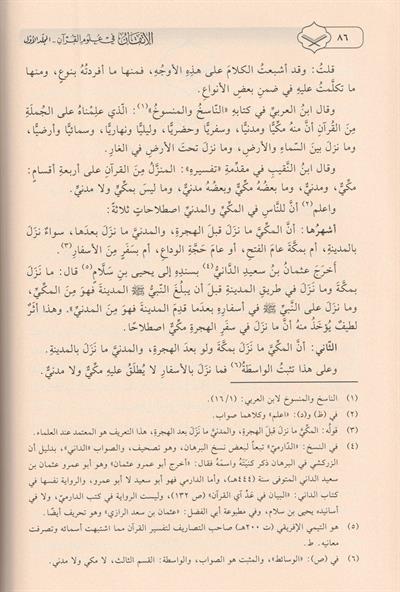 ٨٦
الإتقان في علوم القرآن - المجلد الأول
قلتُ: وقد أشبعتُ الكلامَ على هذِهِ الأوجُهِ، فمنها ما أفردتُهُ بنوعٍ، ومنها
ما تكلَّمتُ عليه في ضمنِ بعضِ الأنواعِ.
وقال ابنُ العربيِّ في كتابِهِ «النَّاسخُ والمنسوخُ»(١): الَّذي علِمْناهُ على الجُملَةِ
مِنَ القُرآنِ أنَّ منه مكِّيًّا ومدنيًّا، وسفريًّا وحضريًّا، وليليًّا ونهاريًّا، وسمائيًّا وأرضيًّا،
وما نزلَ بينَ السَّماءِ والأرضِ، وما نزلَ تحتَ الأرضِ في الغارِ.
وقال ابنُ النَّقيبِ في مقدِّمةِ «تفسيرِهِ»: المنزَّلُ مِنَ القرآنِ على أربعةِ أقسامٍ:
مكِّيٌّ، ومدنيٌّ، وما بعضُهُ مكِّيٌّ وبعضُهُ مدنيٌّ، وما ليسَ بمكِّيٍّ ولا مدنيٍّ.
واعلم(٢) أنَّ للنَّاسِ في المكِّيِّ والمدنيِّ اصطلاحاتٍ ثلاثةً:
أشهرُها: أنَّ المكِّيَّ ما نزَلَ قبلَ الهجرةِ، والمدنيَّ ما نزَلَ بعدَها، سواءٌ نزَلَ
بالمدينةِ، أم بمكَّةَ عامَ الفتحِ، أو عامَ حَجَّةِ الوداعِ، أم بسَفَرٍ مِنَ الأسفارِ(٣).
أَخرَجَ عثمانُ بنُ سعيدٍ الدَّانيُّ(٤) بسندِهِ إلى يحيى بنِ سَلَّامٍ(٥) قال: ما نَزَلَ
بمكَّةَ وما نَزَلَ في طريقِ المدينةِ قبلَ أن يبلُغَ النَّبيُّ ﷺ المدينةَ فهوَ مِنَ المكِّيِّ،
وما نزَلَ على النَّبيِّ ﷺ في أسفارِهِ بعدَما قدِمَ المدينةَ فهوَ مِنَ المدنيِّ». وهذا أثرٌ
لطيفٌ يُؤخَذُ منه أنَّ ما نزَلَ في سفَرِ الهجرةِ مكِّيٌّ اصطلاحًا.
الثَّاني: أنَّ المكِّيَّ ما نَزَلَ بمكَّةَ ولو بعدَ الهجرةِ، والمدنيَّ ما نَزَلَ بالمدينةِ.
وعلى هذا تثبتُ الواسطةُ(٦) فما نزَلَ بالأسفارِ لا يُطلَقُ عليه مكِّيٌّ ولا مدنيٌّ.
(١) الناسخ والمنسوخ لابن العربي: (١٦/١).
(٢) في (ظ) و(د): «اعلم» وكلاهما صواب.
(٣) قولُه: المكِّي ما نزَلَ قبلَ الهجرةِ، والمدني ما نزَل بعد الهجرة، هذا التعريف هو المعتمد عند العلماء.
(٤) في النسخ: «الدَّارميّ» تبعاً لبعض نسخ البرهان، وهو تصحيف، والصواب «الداني»، بدليل أن
الزركشي في البرهان ذكر كنيته واسمه فقال: «أخرج أبو عمرو عثمان» وهو أبو عمرو عثمان بن
سعيد الداني المتوفى سنة (٤٤٤هـ)، وأما الدارمي فهو أبو سعيد لا أبو عمرو، والرواية نفسها في
كتاب الداني: «البيان في عَدِّ آي القرآن» (ص ١٣٢)، وليست الرواية في كتب الدارميّ، ولا في
أسانيده يحيى بن سلام، وفي مطبوعة أبي الفضل: «عثمان بن سعد الرازي» وهو تحريف أيضًا.
(٥) هو التيمي الإفريقي (ت ٢٠٠هـ) صاحب التصاريف لتفسير القرآن مما اشتبهت أسمائه وتصرفت
معانيه. ط.
(٦) في (ص): «الوسائط»، والمثبت هو الصواب، والواسطة: القسم الثالث، لا مكي ولا مدني.